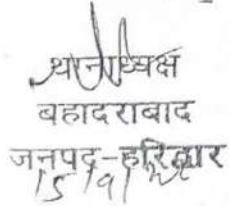 थानाध्यक्ष
बहादराबाद
जनपद-हरिद्वार